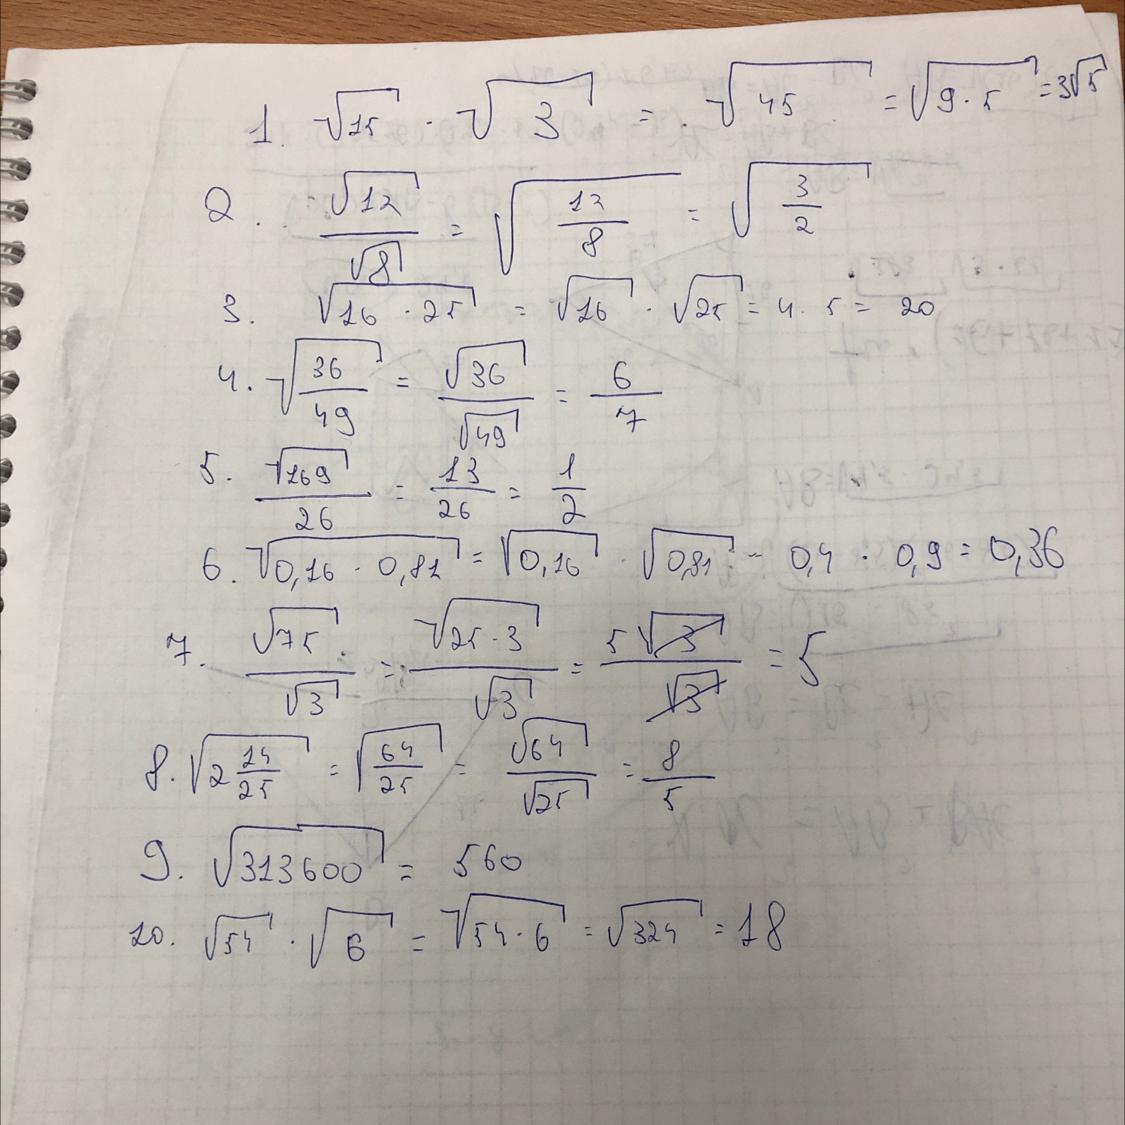 1. √15 · √3 = √45 = √9·5 = 3√5
2. √12/√8 = √(12/8) = √(3/2)
3. √16·25 = √16 · √25 = 4·5 = 20
4. √(36/49) = √36/√49 = 6/7
5. √169/26 = 13/26 = 1/2
6. √0,16·0,81 = √0,16 · √0,81 = 0,4 · 0,9 = 0,36
7. √75/√3 = √25·3/√3 = 5√3/√3 = 5
8. √(2 14/25) = √(64/25) = √64/√25 = 8/5
9. √313600 = 560
10. √54 · √6 = √54·6 = √324 = 18